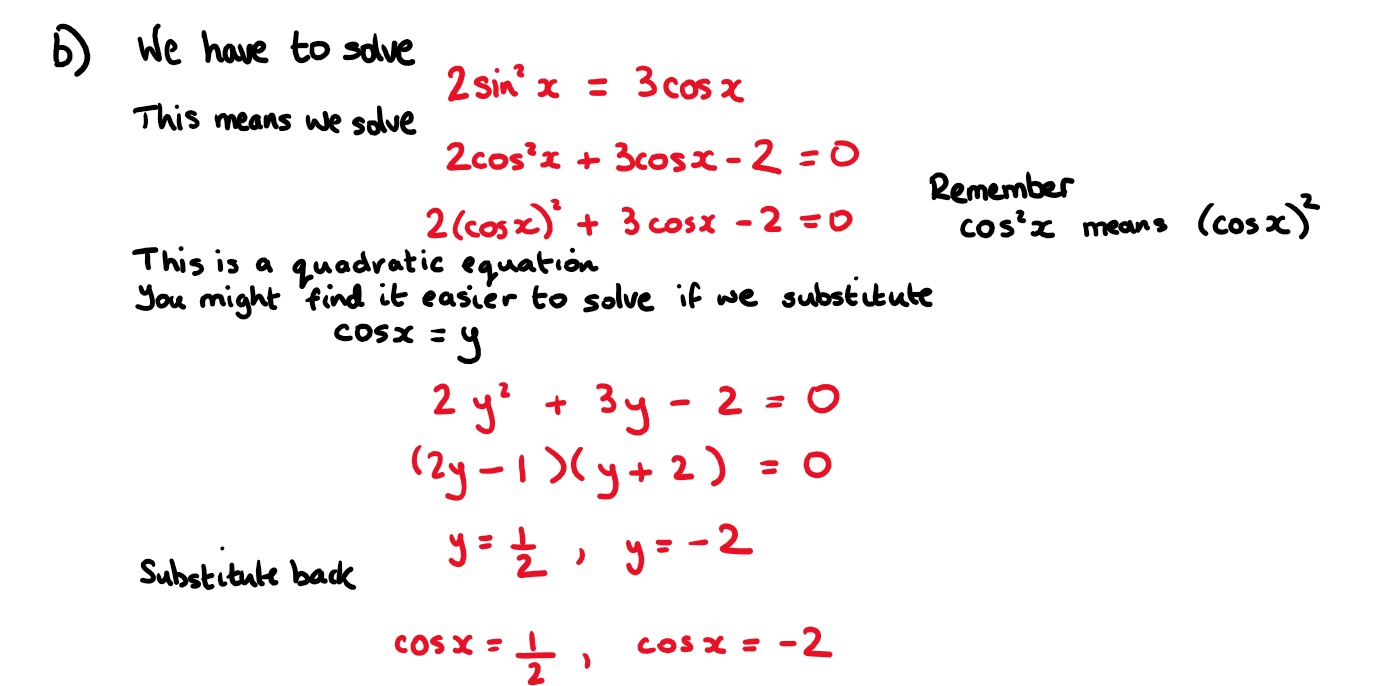 b) We have to solve
2sin²x = 3cosx
This means we solve
2cos²x + 3cosx - 2 = 0
2(cosx)² + 3cosx - 2 = 0
Remember
cos²x means (cosx)²
This is a quadratic equation
You might find it easier to solve if we substitute
cosx = y
2y² + 3y - 2 = 0
(2y - 1)(y + 2) = 0
y = 1/2 , y = -2
Substitute back
cosx = 1/2 , cosx = -2